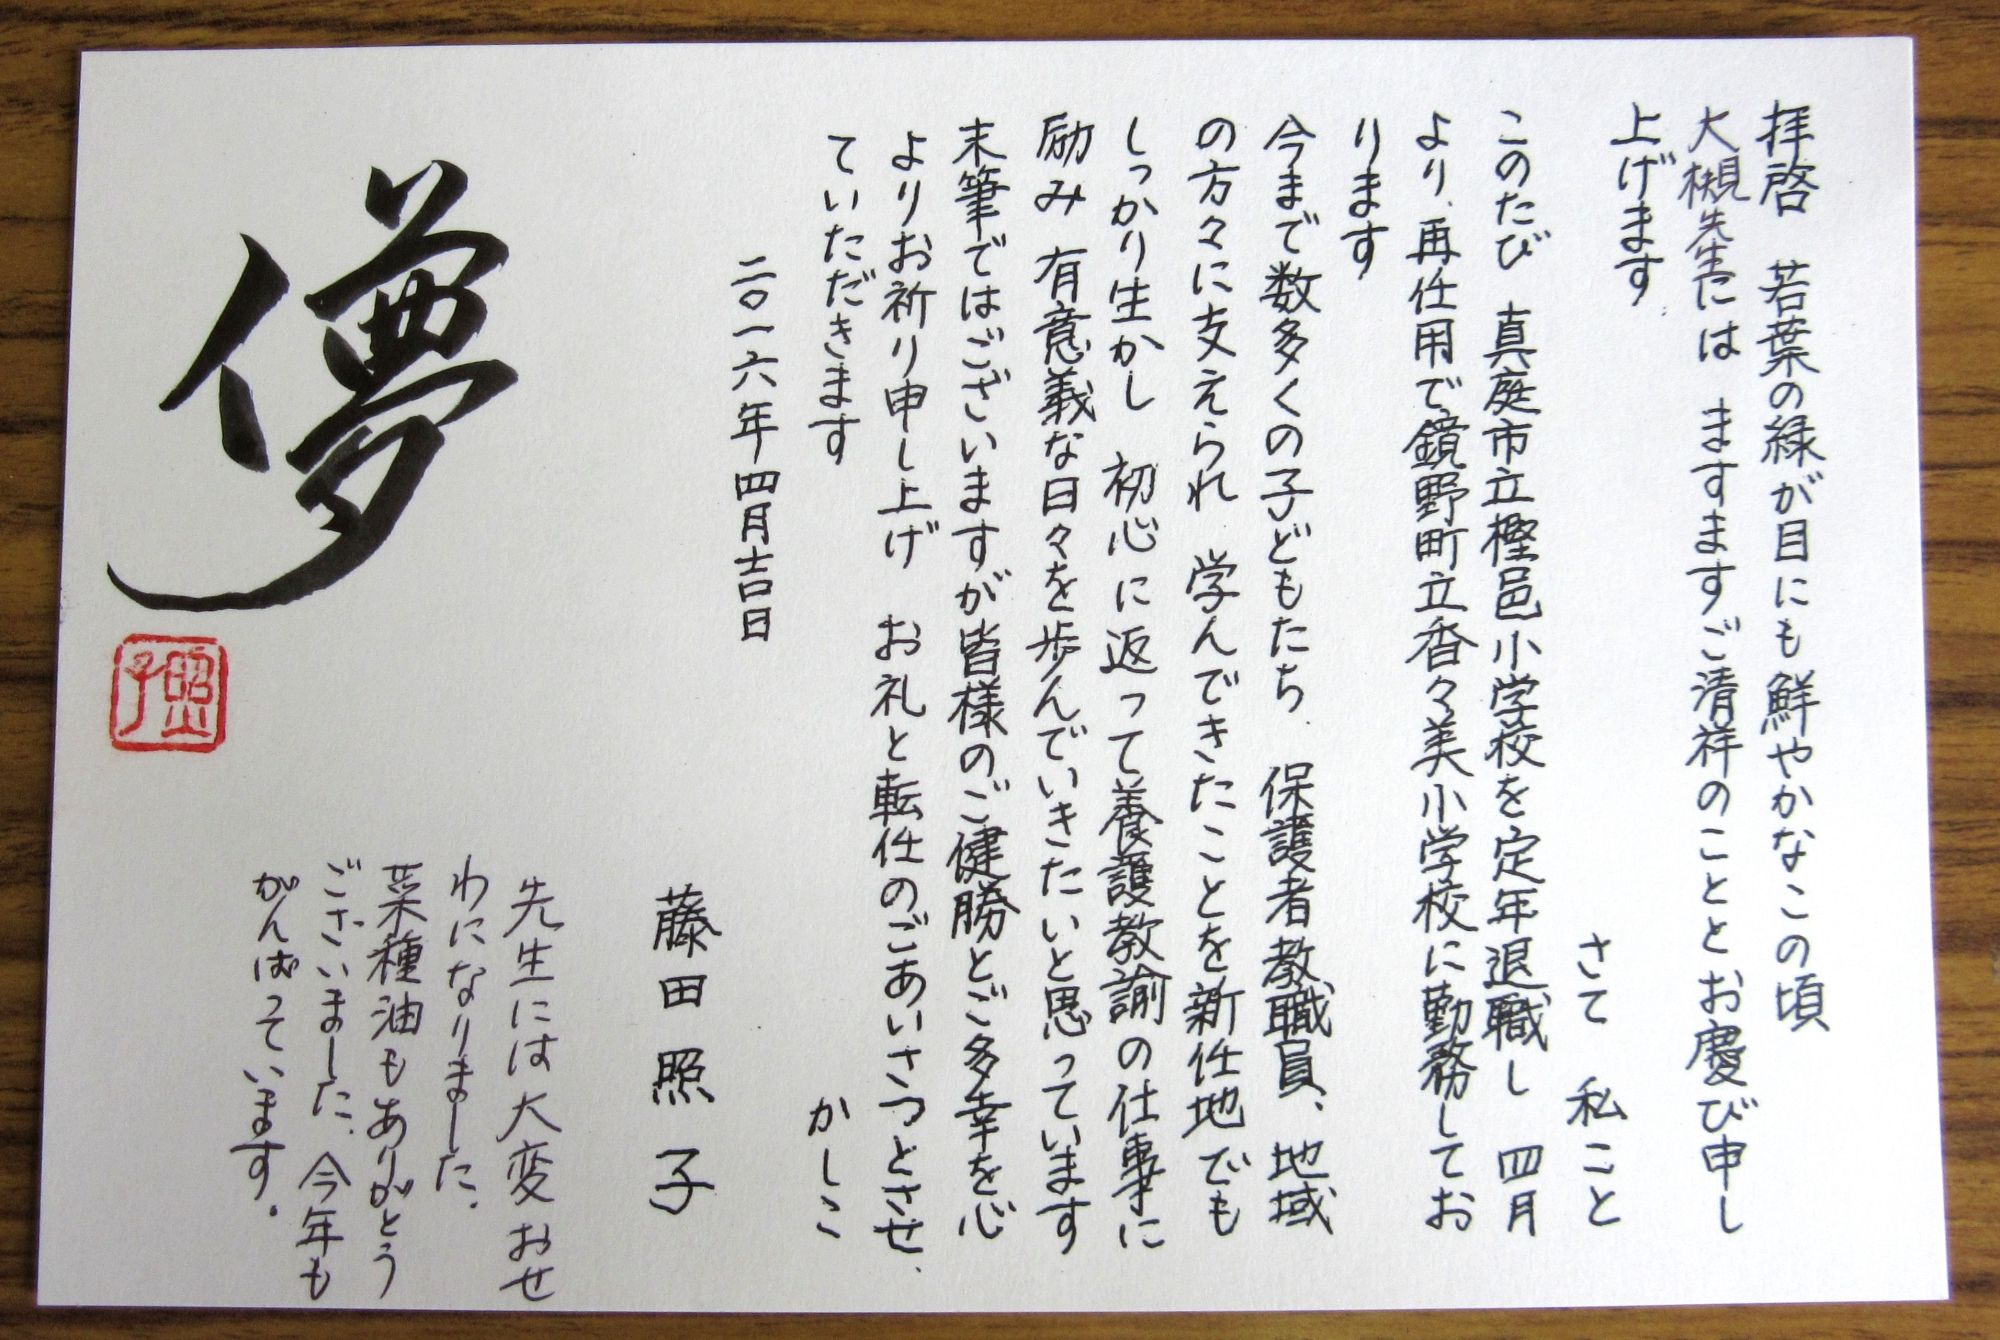 拝啓　若葉の緑が目にも鮮やかなこの頃
大槻先生には　ますますご清祥のこととお慶び申し
上げます
さて　私こと
このたび　真庭市立樫邑小学校を定年退職し　四月
より、再任用で鏡野町立香々美小学校に勤務してお
ります
今まで数多くの子どもたち、保護者教職員、地域
の方々に支えられ　学んできたことを新任地でも
しっかり生かし　初心に返って養護教諭の仕事に
励み　有意義な日々を歩んでいきたいと思っています
末筆ではございますが皆様のご健勝とご多幸を心
よりお祈り申し上げ　お礼と転任のごあいさつとさせ、
ていただきます
かしこ
二〇一六年四月吉日
藤田照子
先生には大変おせ
わになりました。
菜種油もありがとう
ございました。今年も
がんばっています。
儚
照子